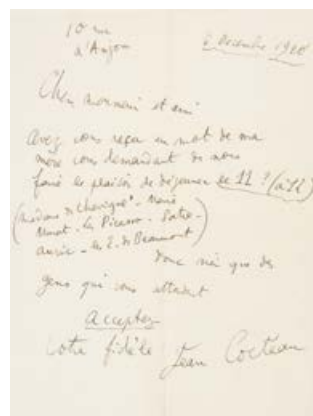 10 rue
d'Anjou
6 Decembre 19
Cher et ami
avez vous reçu un mot de ma
mère vous demandant de nous
faire le plaisir de déjeuner le 12 ? (à 12)
(Madame de Chevigné - Marie
Murat - les Picasso - Satie -
Auric - les E. de Beaumont)
Donc rien que des
gens qui vous attendent
acceptez
Votre fidèle Jean Cocteau